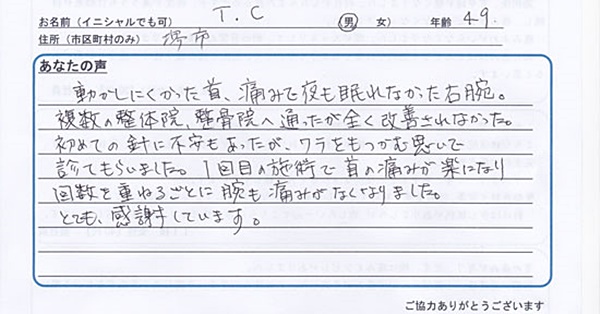 お名前（イニシャルでも可） T.C 男 女） 年齢 49.
住所（市区町村のみ） 堺市
あなたの声
動かしにくかった首、痛みで夜も眠れなかった右腕。
複数の整体院、整骨院へ通ったが全く改善されなかった。
初めての針に不安もあったが、ワラをもつかむ思いで
診てもらいました。1回目の施術で首の痛みが楽になり
回数を重ねるごとに腕も痛みがなくなりました。
とても感謝しています。
ご協力ありがとうございます